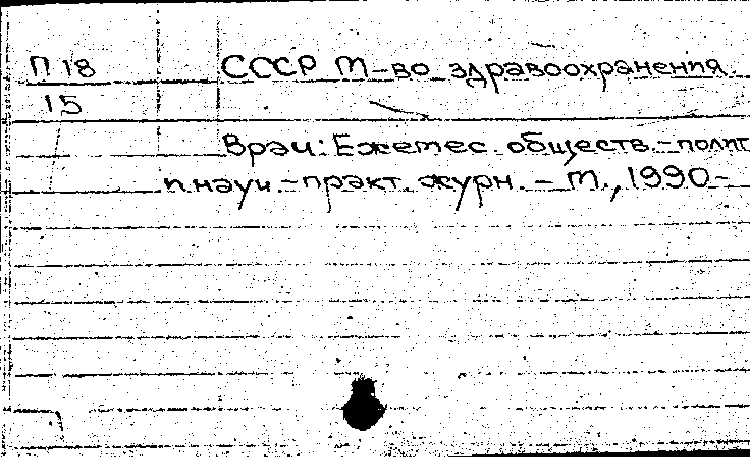 П 18 СССР М-во здравоохранения
15
Врач: Ежемес. обществ.-полит
и науч.-практ. журн. - М., 1990-